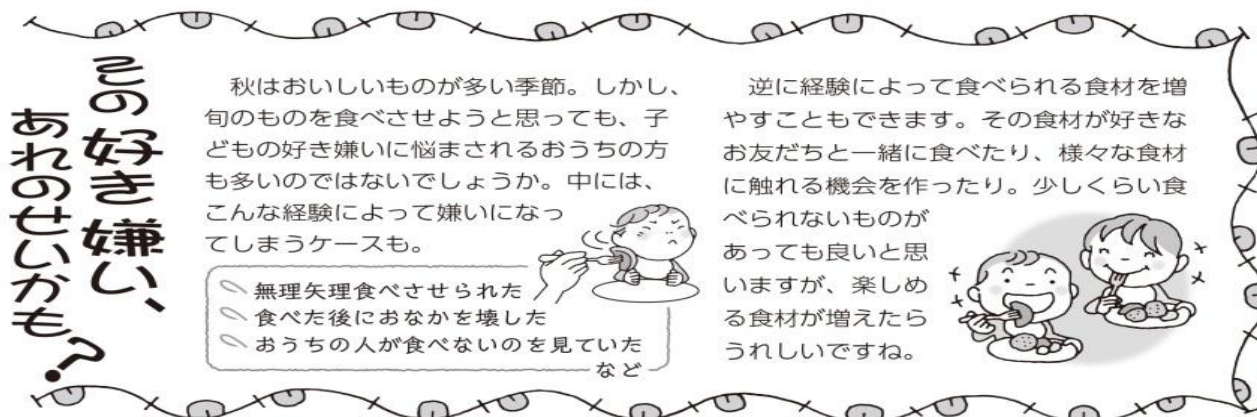 その好き嫌い、
あれのせいかも？
秋はおいしいものが多い季節。しかし、
旬のものを食べさせようと思っても、子
どもの好き嫌いに悩まされるおうちの方
も多いのではないでしょうか。中には、
こんな経験によって嫌いになっ
てしまうケースも。
無理矢理食べさせられた
食べた後におなかを壊した
おうちの人が食べないのを見ていた
など
逆に経験によって食べられる食材を増
やすこともできます。その食材が好きな
お友だちと一緒に食べたり、様々な食材
に触れる機会を作ったり。少しくらい食
べられないものが
あっても良いと思
いますが、楽しめ
る食材が増えたら
うれしいですね。